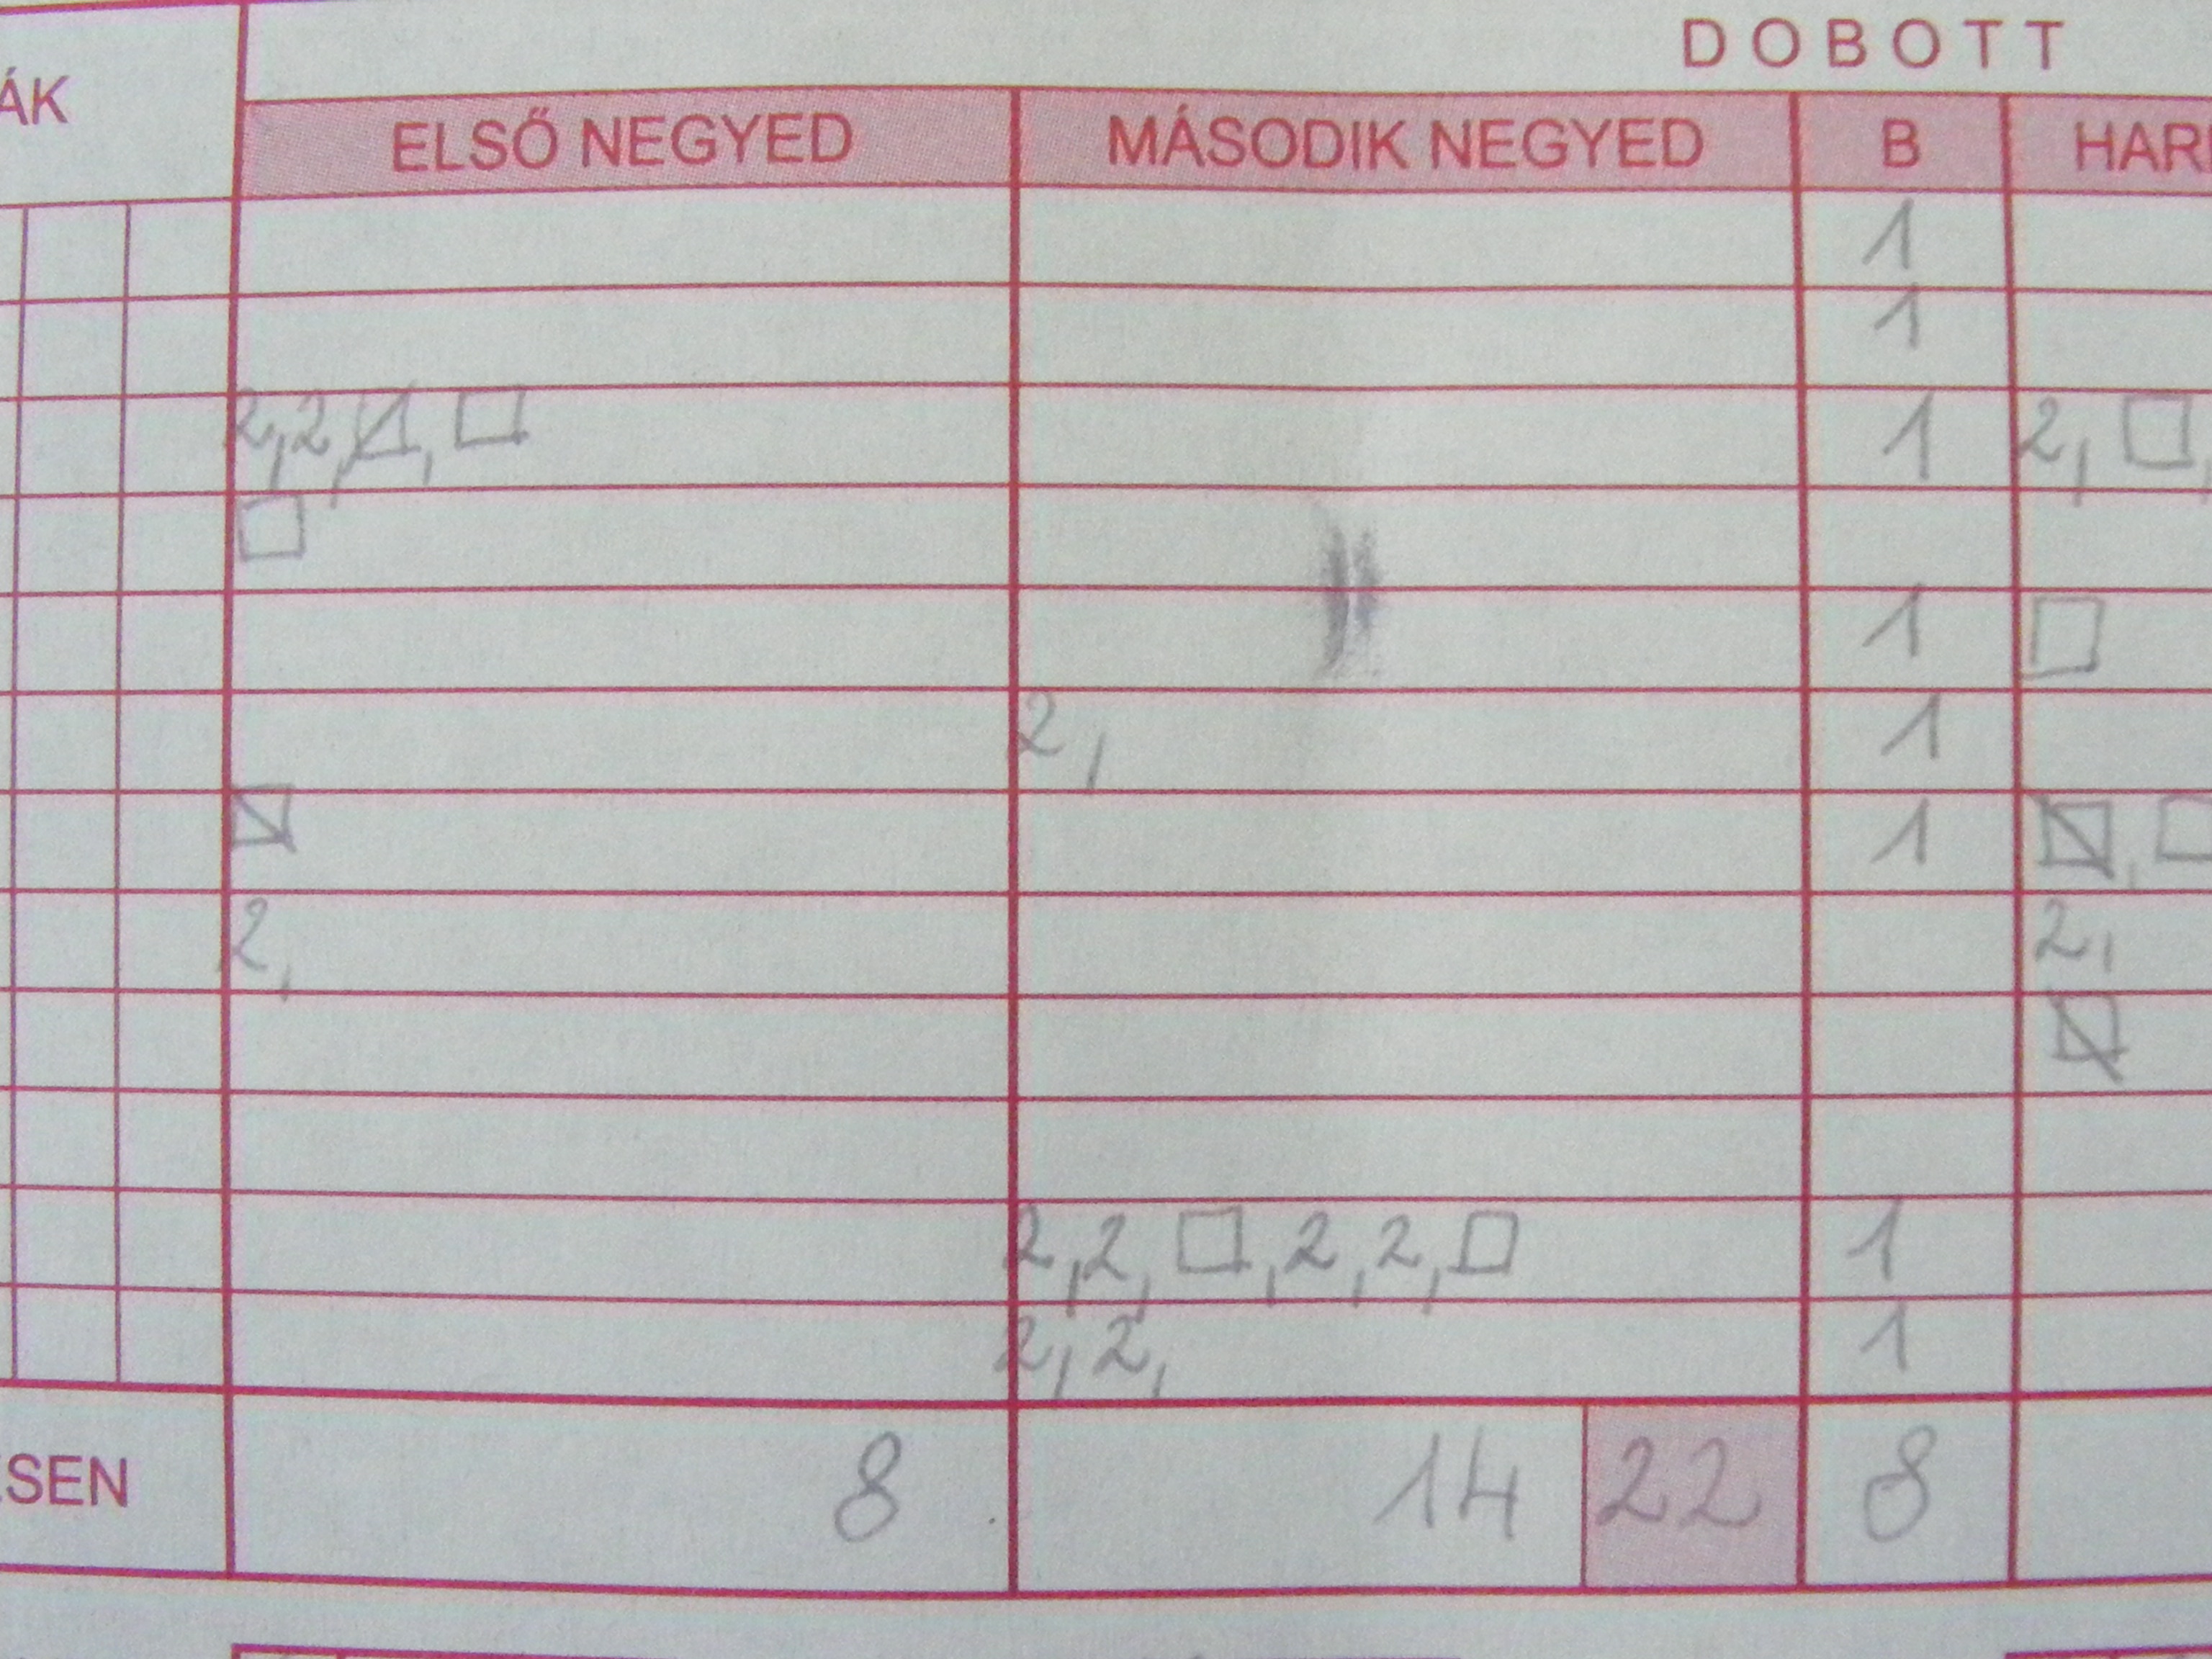 DOBOTT
ÁK
ELSŐ NEGYED MÁSODIK NEGYED B HAR
1
1
2,2, 1 2,
1
2, 1
1
2, 2,
2,2, ,2,2, 1
2,2, 1
ESEN 8 14 22 8